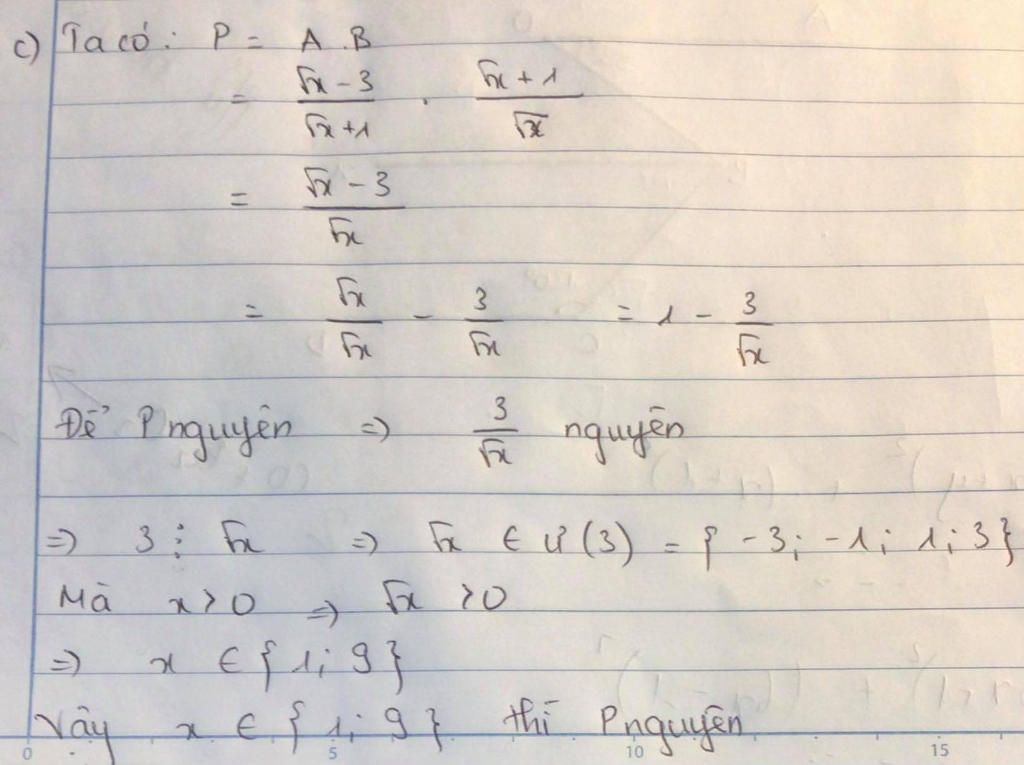 c) Ta có: P = A.B
= (√x - 3)/(√x + 1) . (√x + 1)/√x
= (√x - 3)/√x
= √x/√x - 3/√x = 1 - 3/√x
Để P nguyên => 3/√x nguyên
=> 3 ⋮ √x => √x ∈ Ư(3) = {-3; -1; 1; 3}
Mà x > 0 => √x > 0
=> x ∈ {1; 9}
Vậy x ∈ {1; 9} thì P nguyên
0 5 10 15